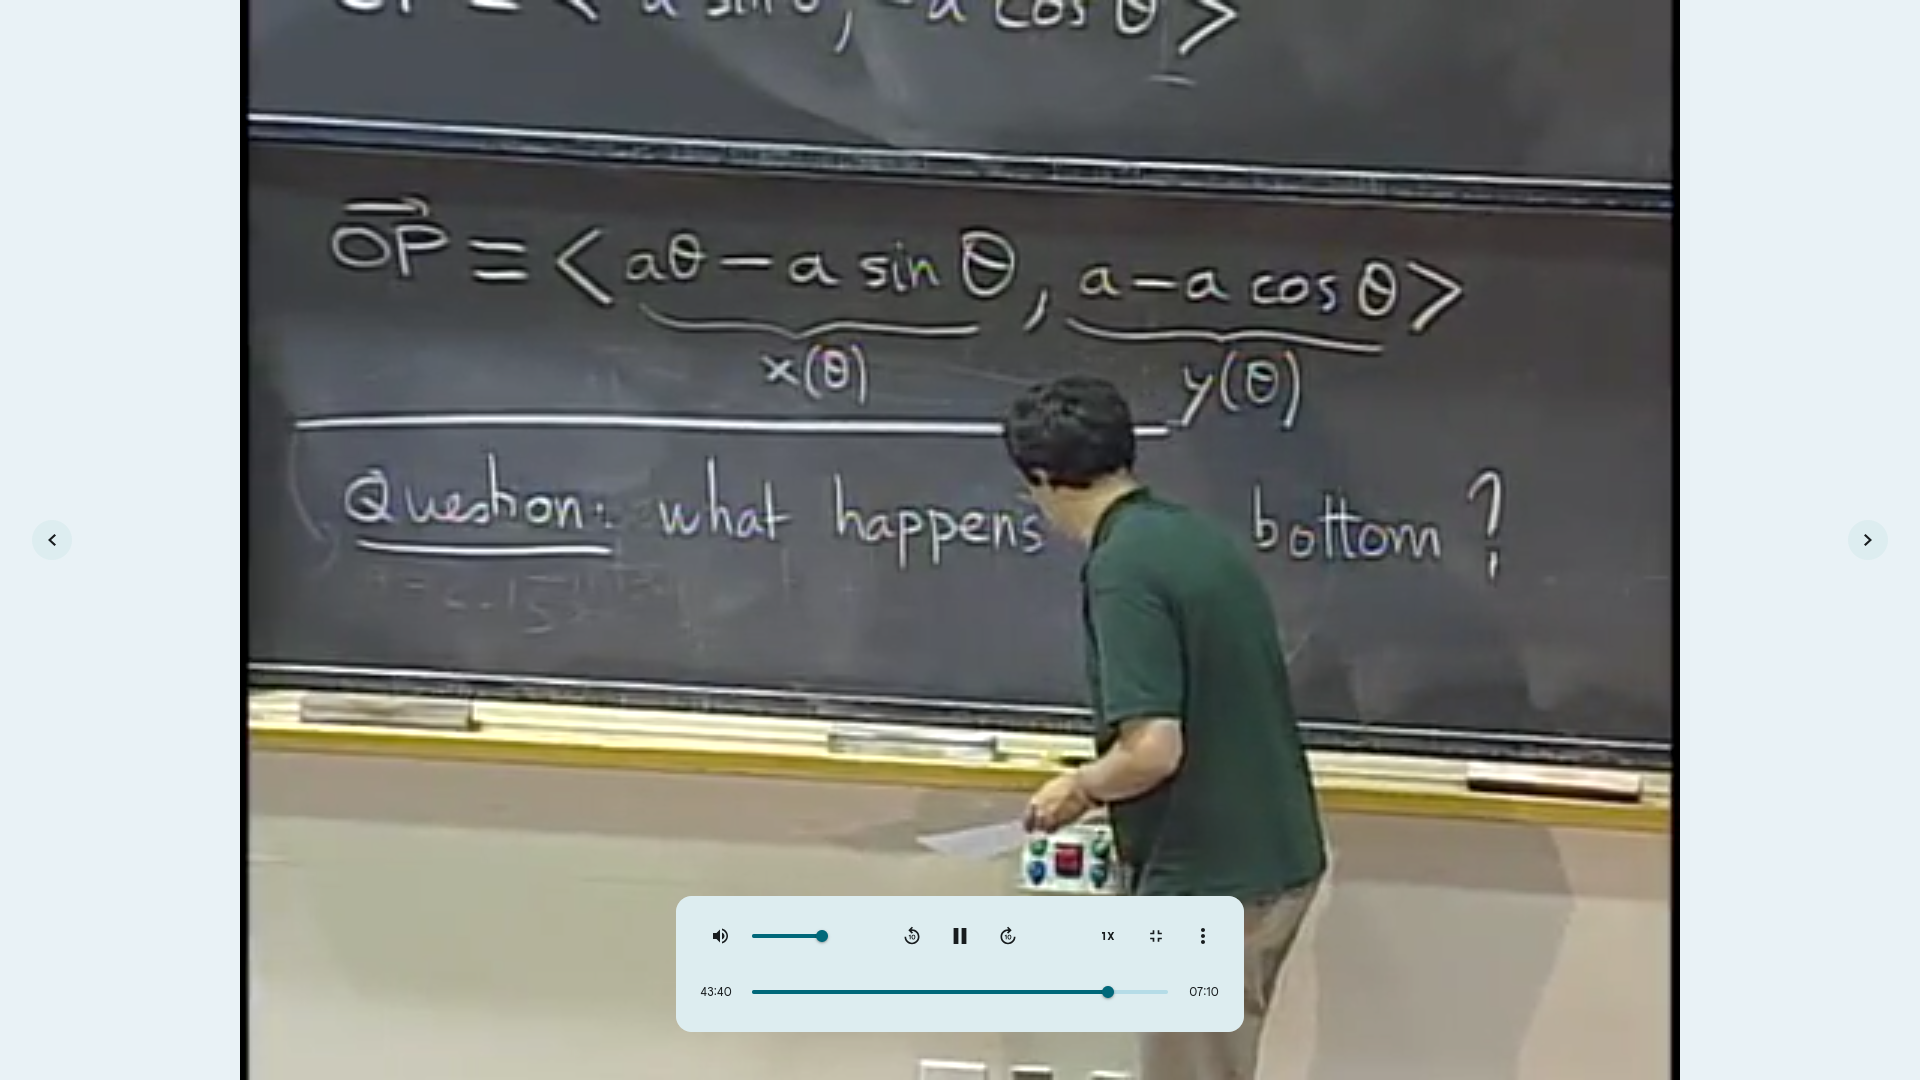 = < a sin θ, -a cos θ >
OP = < aθ - a sin θ, a - a cos θ >
x(θ) y(θ)
Question: what happens bottom ?
10 10 1X
43:40 07:10